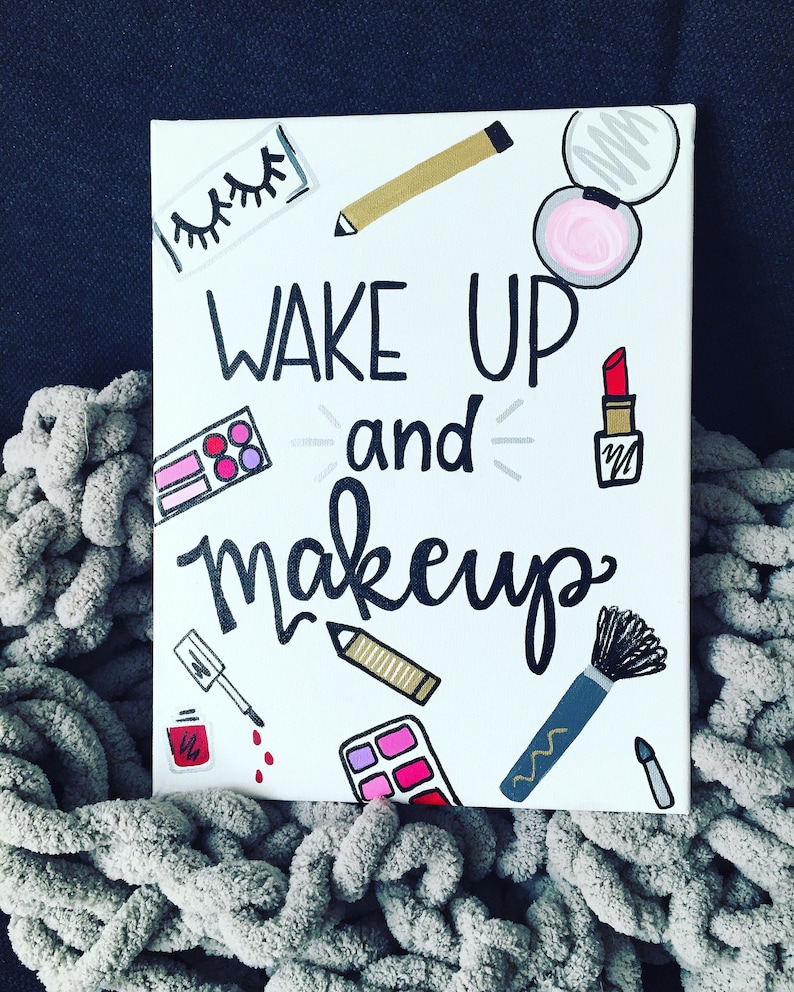 WAKE UP
and
makeup